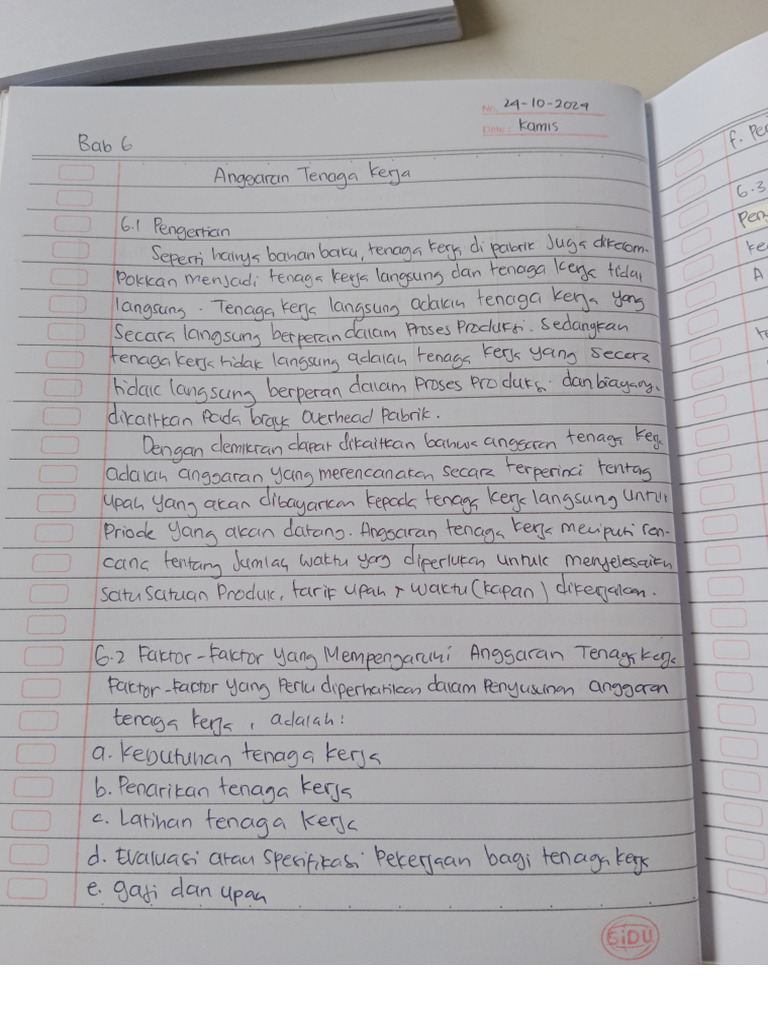 No. 24-10-2024
Date: Kamis
Bab 6
Anggaran Tenaga Kerja
6.1 Pengertian
Seperti halnya bahan baku, tenaga kerja di pabrik Juga dikelom-
Pokkan menjadi tenaga kerja langsung dan tenaga kerja tidak
langsung. Tenaga kerja langsung adalah tenaga kerja yang
Secara langsung berperan dalam Proses Produksi. Sedangkan
tenaga kerja tidak langsung adalah tenaga kerja yang secara
tidak langsung berperan dalam Proses Produksi dan biayanya
dikaitkan Pada biaya Overhead Pabrik.
Dengan demikian dapat dikaitkan bahwa anggaran tenaga kerja
adalah anggaran yang merencanakan secara terperinci tentang
upah yang akan dibayarkan kepada tenaga kerja langsung untuk
Priode yang akan datang. Anggaran tenaga kerja meliputi ren-
cana tentang Jumlah waktu yang diperlukan untuk menyelesaikn
satu satuan Produk, tarif upah & waktu (kapan) dikerjakan.
6.2 Faktor-Faktor yang Mempengaruhi Anggaran Tenaga kerja
Faktor-Faktor yang Perlu diperhatikan dalam Penyusunan anggaran
tenaga kerja, adalah:
a. kebutuhan tenaga kerja
b. Penarikan tenaga kerja
c. Latihan tenaga kerja
d. Evaluasi atau Spesifikasi Pekerjaan bagi tenaga kerja
e. gaji dan upah
SiDU
f. Pe
6.3
Pen
ke
A